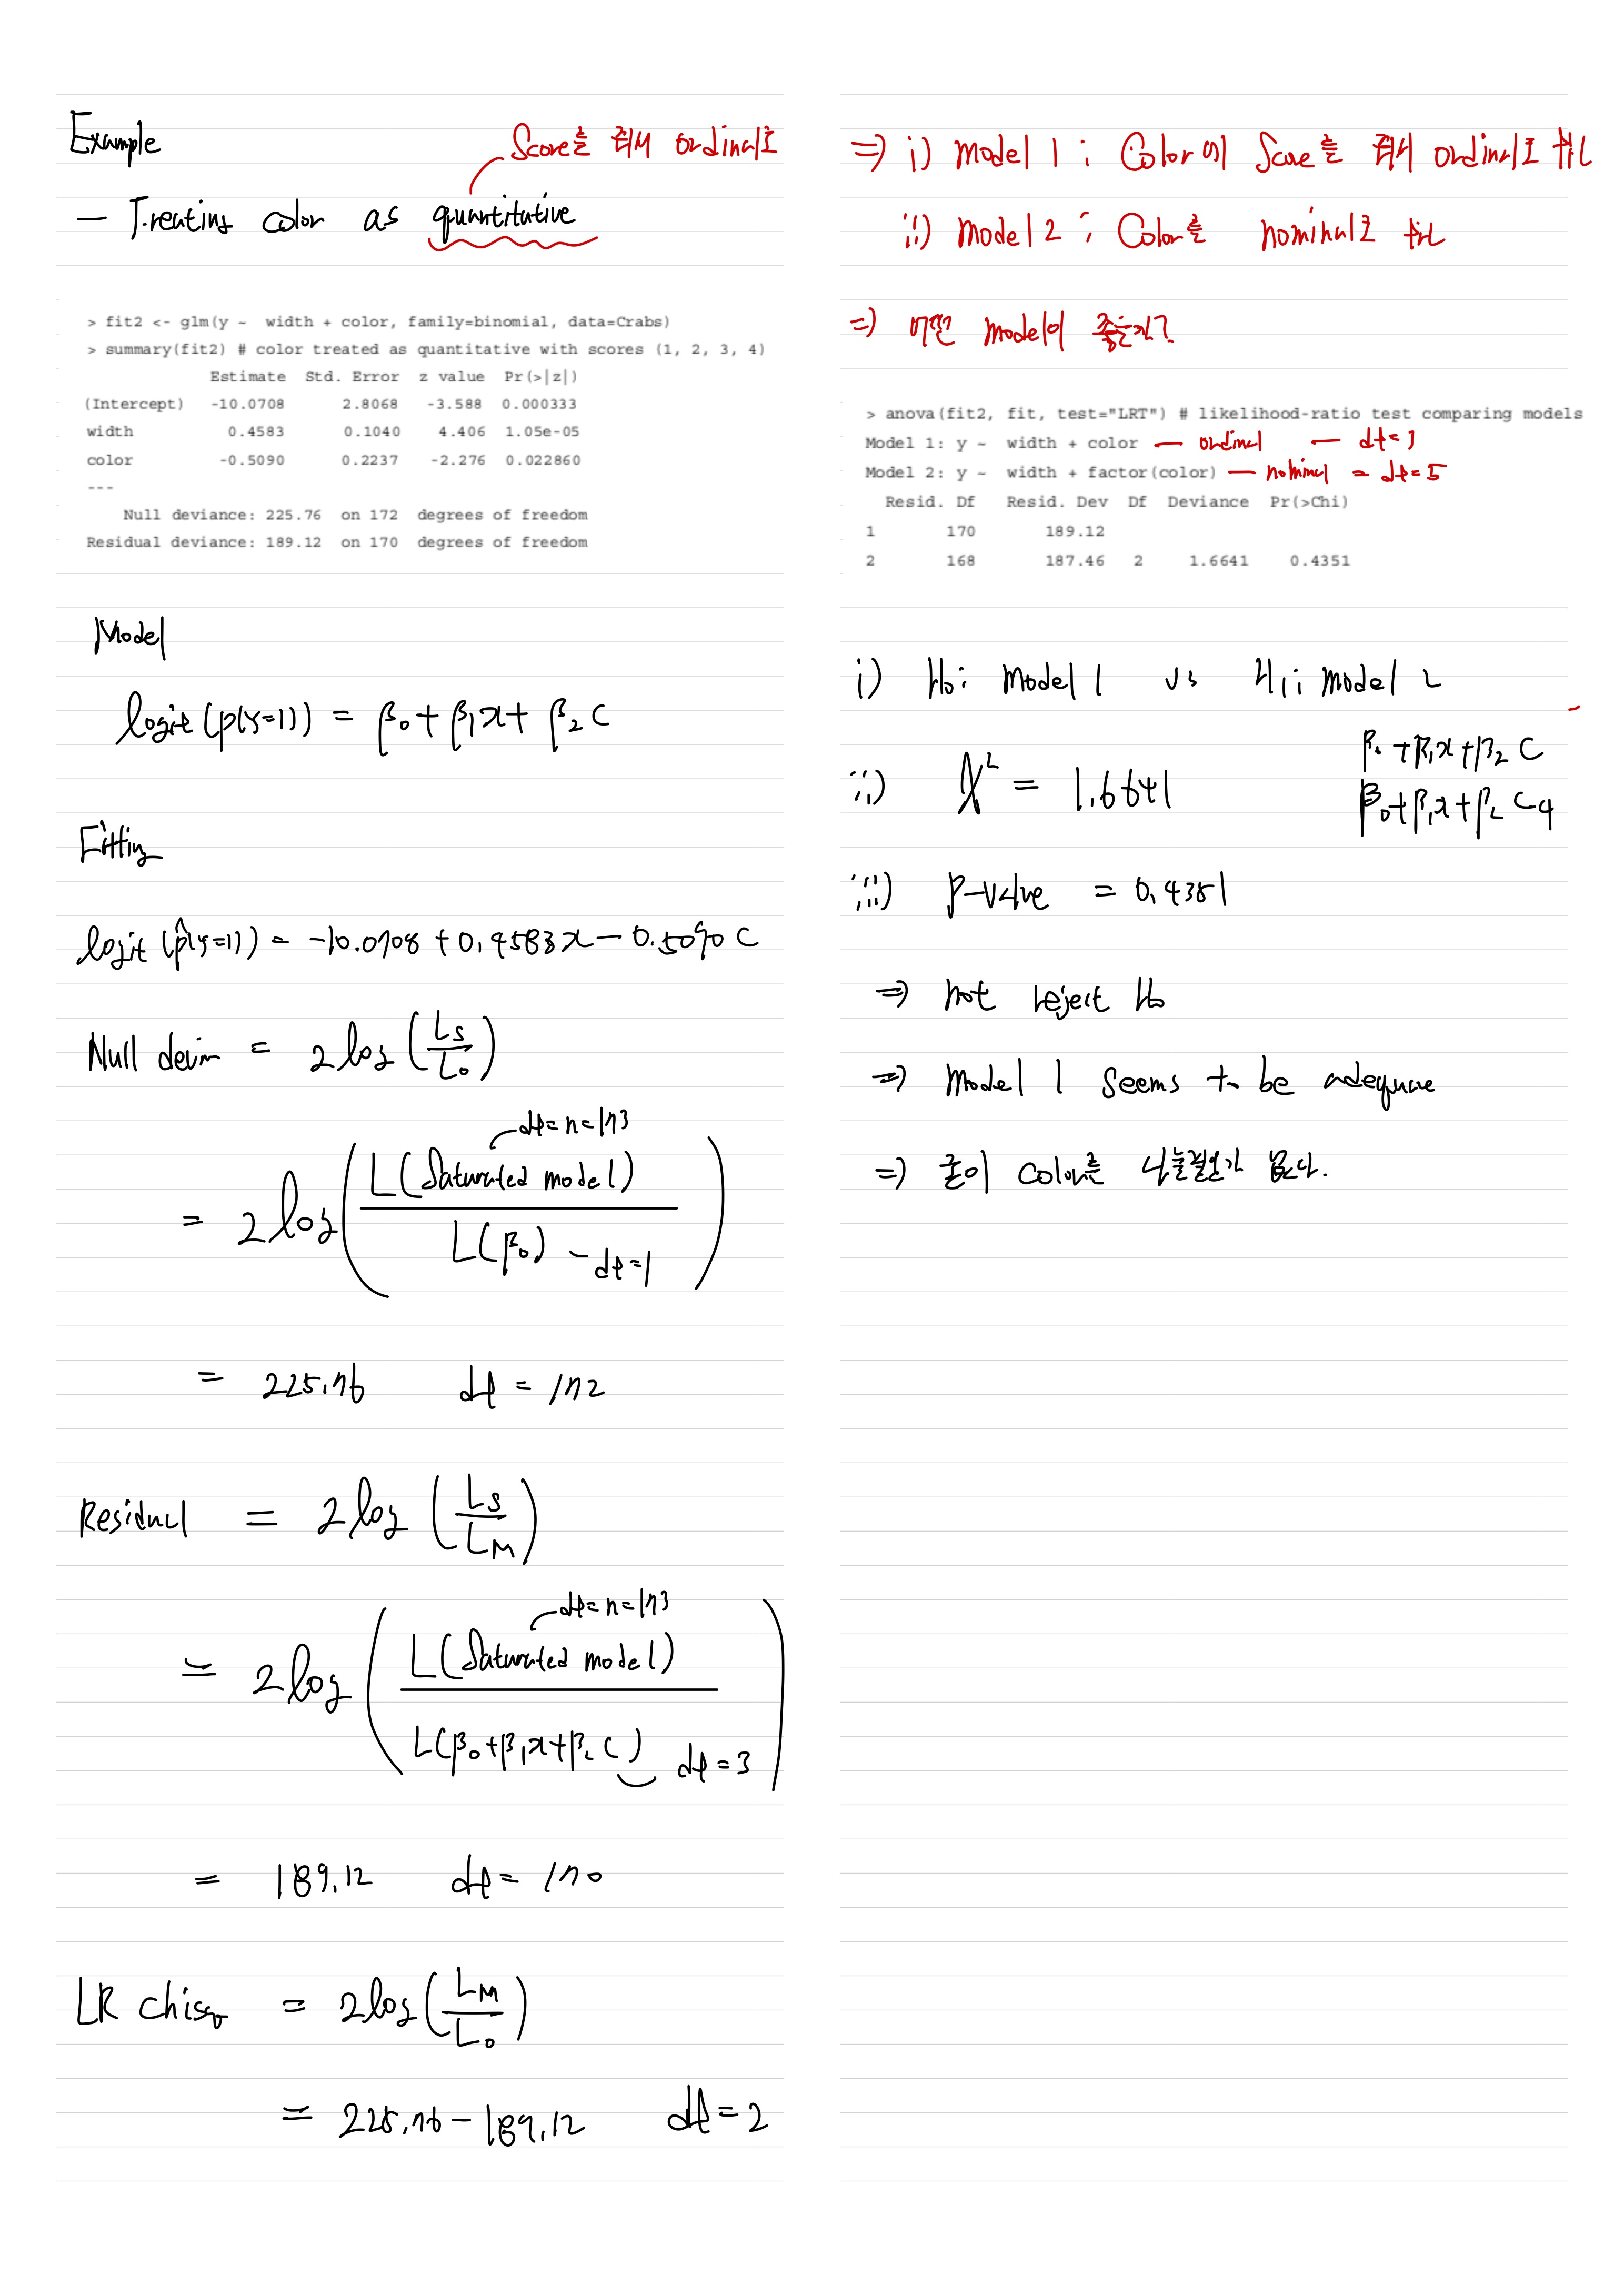 Example
Score를 줘서 ordinal로
– Treating color as quantitative
> fit2 <- glm(y ~ width + color, family=binomial, data=Crabs)
> summary(fit2) # color treated as quantitative with scores (1, 2, 3, 4)
Estimate Std. Error z value Pr(>|z|)
(Intercept) -10.0708 2.8068 -3.588 0.000333
width 0.4583 0.1040 4.406 1.05e-05
color -0.5090 0.2237 -2.276 0.022860
---
Null deviance: 225.76 on 172 degrees of freedom
Residual deviance: 189.12 on 170 degrees of freedom
Model
logit (p(y=1)) = β₀ + β₁x + β₂ c
Fitting
logit (p̂(y=1)) = -10.0708 + 0.4583x - 0.5090 c
Null devian = 2 log (Ls/L₀)
df = n = 173
= 2 log ( L(Saturated model) / L(β₀) – df = 1 )
= 225.76 df = 172
Residual = 2 log (Ls/LM)
df = n = 173
= 2 log ( L(Saturated model) / L(β₀+β₁x+β₂ c) df = 3 )
= 189.12 df = 170
LR chisq = 2 log (LM/L₀)
= 225.76 - 189.12 df = 2
⇒ i) Model 1 : Color에 Score를 줘서 ordinal로
ii) Model 2 : Color를 nominal로
⇒ 어떤 model이 좋은가?
> anova(fit2, fit, test="LRT") # likelihood-ratio test comparing models
Model 1: y ~ width + color – ordinal – df = 3
Model 2: y ~ width + factor(color) – nominal = df = 5
Resid. Df Resid. Dev Df Deviance Pr(>Chi)
1 170 189.12
2 168 187.46 2 1.6641 0.4351
i) H₀: Model 1 vs H₁: model 2
β₀ + β₁x + β₂ C
ii) X² = 1.6641
β₀ + β₁x + β₂ C4
iii) P-value = 0.4351
⇒ not reject H₀
⇒ model 1 seems to be adequate
⇒ 굳이 color를 나눌필요가 없다.